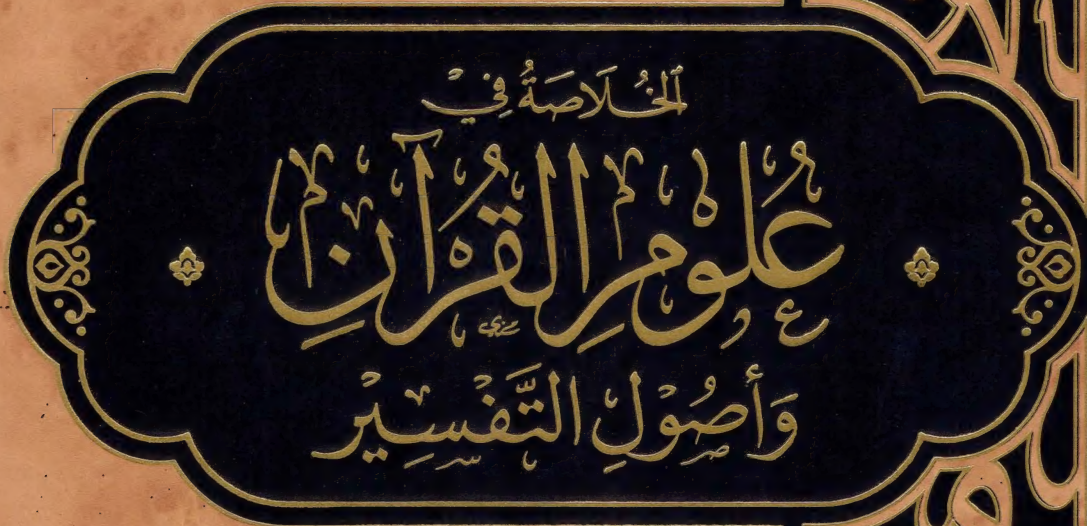 الخُلَاصَةُ فِيْ
عُلُومِ القُرْآنِ
وَأُصُوْلِ التَّفْسِيْرِ